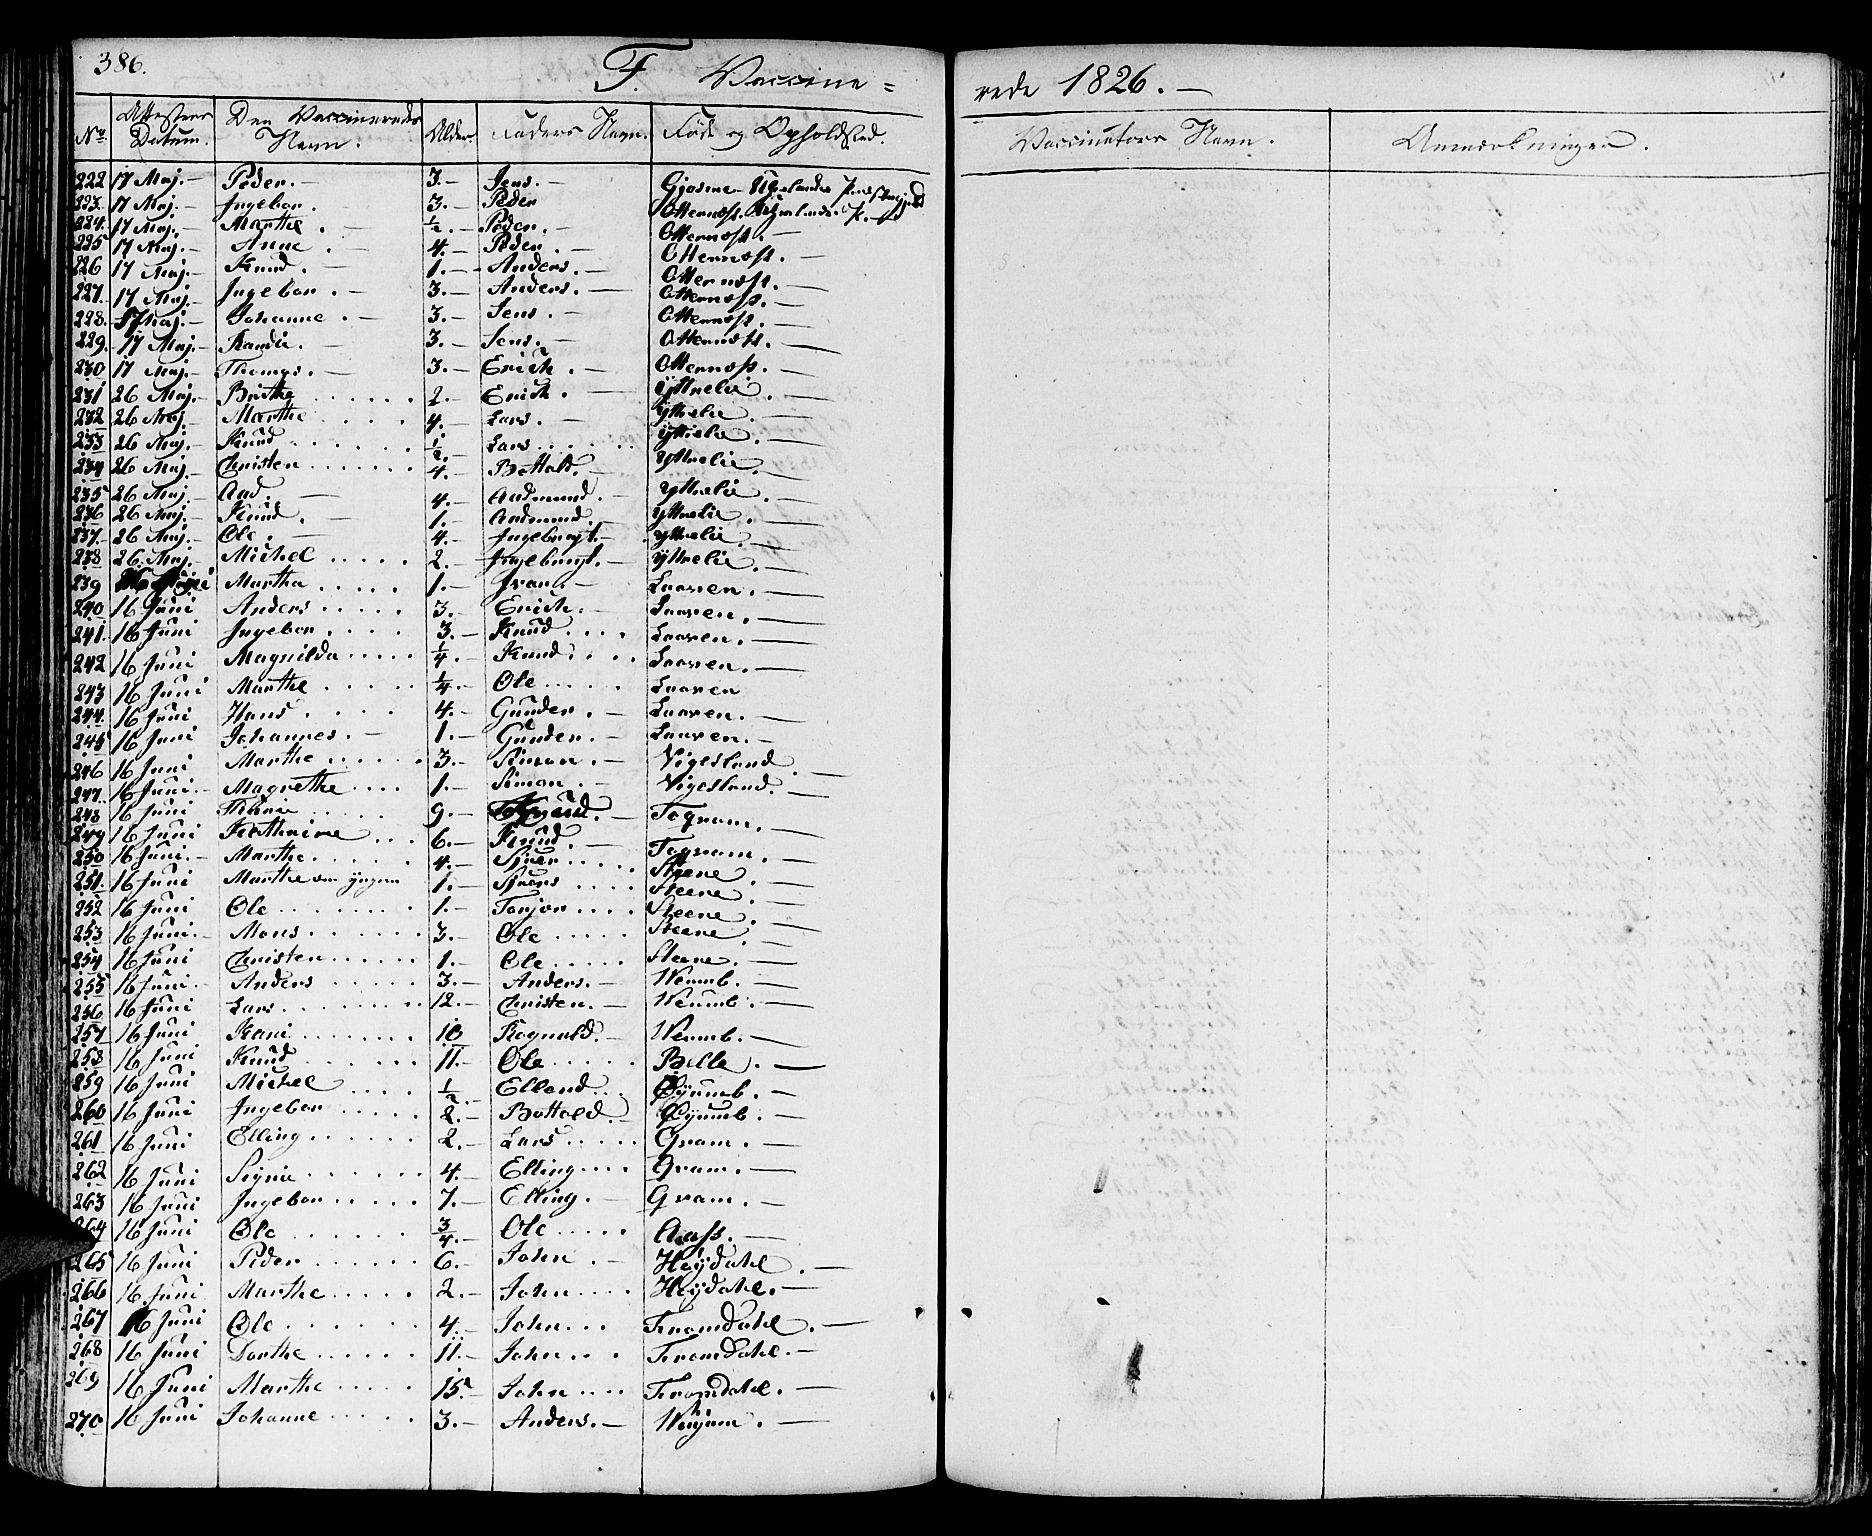 386.
F. Vaccine=
rede 1826. —
No. Attestens Datum. Den Vaccineredes Navn. Alder. Faders Navn. Føde og Opholdsted. Vaccinateurs Navn. Anmærkninger.
222 17 Maj. — Peder. — 3. — Jens. — Gjosme
223. 17 Maj. — Ingebor. 3. — Peder Otternæss.
224. 17 Maj. — Marthe. — ½. — Peder. — Otternæss. —
225 17 Maj. — Anne. 4. — Peder. — Otternæss. —
226 17 Maj. — Knud. — 1. — Anders. — Otternæss. —
227. 17 Maj. — Ingebor. — 3. — Anders. — Otternæss. —
228. 17 Maj. — Johanne. — 3. — Jens. — Otternæss. —
229. 17 Maj. — Kandie. 3. — Jens. — Otternæss. —
230 17 Maj. — Thomas. — 3. — Erich. — Otternæss. —
231 26 Maj. — Brithe 2. — Erich. — Yttrelie. —
232 26 Maj. Marthe 4. — Lars. — Yttrelie. —
233 26 Maj. — Knud ½. — Lars Yttrelie. —
234 26 Maj. — Christen 4. — Bottolt. — Yttrelie. —
235 26 Maj. — Aad. — 4. — Aadmund. — Yttrelie. —
236 26 Maj. — Knud. — 1. — Aadmund. — Yttrelie. —
237. 26 Maj. — Ole. — 4. — Ingebrigt. — Yttrelie. —
238 26. Maj. Michel 2. — Ingebrigt. — Yttrelie. —
239 16 Juni Martha 1. — Ivar. — Laaven. —
240 16 Juni Anders 3. — Erich. — Laaven. —
241. 16 Juni Ingebor 3. — Knud Laaven. —
242 16 Juni Magnilda ¼. — Knud Laaven. —
243 16 Juni Marthe ¼. — Ole Laaven
244. 16 Juni Hans 4. — Gunder. — Laaven. —
245 16 Juni Johannes. — 1. — Gunder. — Laaven. —
246 16 Juni Marthe 3. — Simon. — Vigesland. —
247. 16 Juni. — Magrethe 1. — Simon. — Vigesland. —
248 16 Juni 9. — Knud. — Togram. —
249 16 Juni Kathrine 6. — Knud. — Togram. —
250 16 Juni. — Marthe 4. — Siver Steene. —
251. 16 Juni Marthe den yngere 1. — Sivers Steene. —
252 16 Juni Ole 1. — Torjor Steene. —
253 16 Juni. — Mons 3. — Ole Steene. —
254 16 Juni Christen 1. — Ole Steene. —
255 16 Juni. Anders 3. — Anders. — Wemmb. —
256 16 Juni Lars 12. — Christen. — Wemmb. —
257 16 Juni Kani 10 Rognald. — Wemmb. —
258 16 Juni Knud 11. — Ole Belle. —
259 16 Juni Michel ½. — Elland Øyumb. —
260 16 Juni Ingebor 2. — Bottold. — Øyumb. —
261 16 Juni Elling 2. — Lars Gram. —
262 16 Juni Signie 4. — Elling Gram. —
263 16 Juni Ingebor 7. — Elling. — Gram. —
264 16 Juni Ole ¾. — Ole Aass. —
265 16 Juni Peder 6. — John. — Heydahl. —
266 16 Juni Marthe 2. — John Heydahl. —
267 16 Juni Ole 4. — John Fromdahl. —
268 16 Juni Dorthe 11. — John Fromdahl. —
269 16 Juni Marthe 15. — John Fromdahl. —
270 16 Juni Johanne 3. — Anders. — Wiyum. —